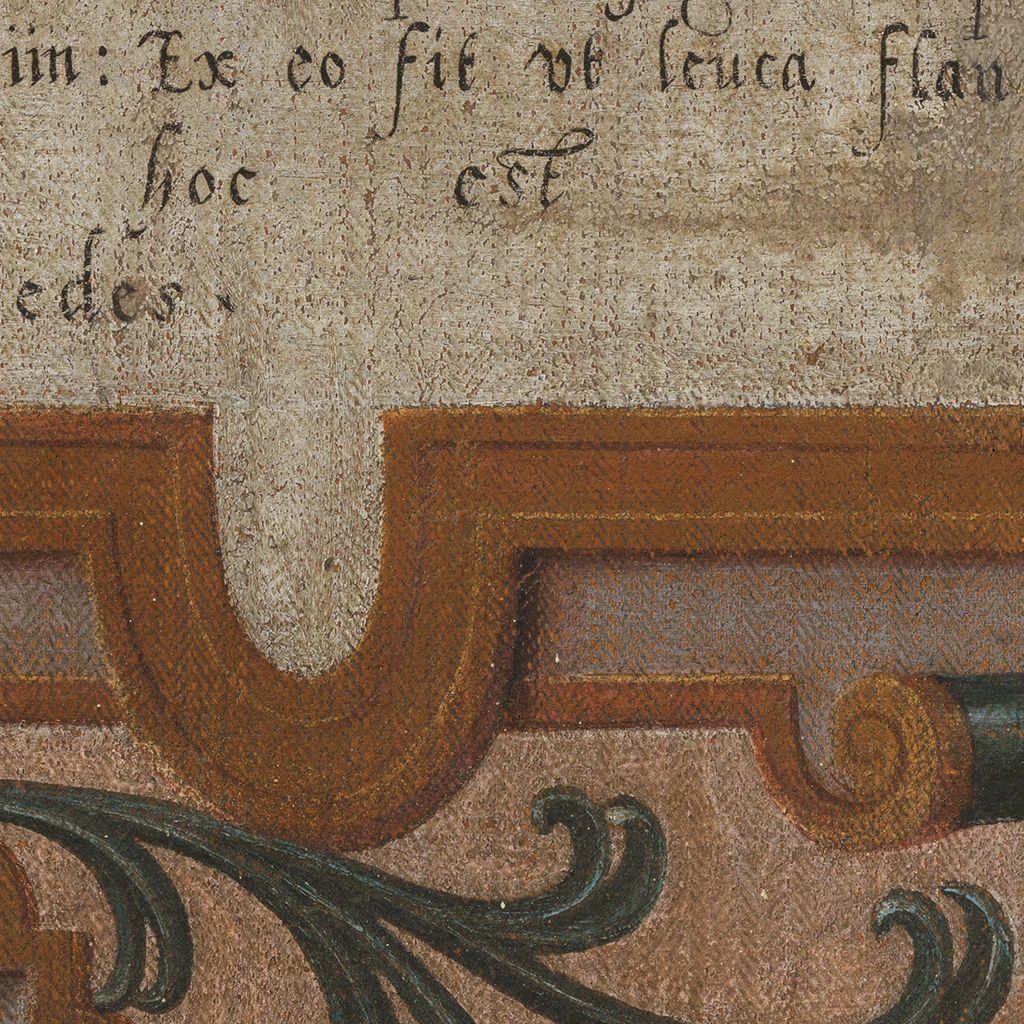 iin: Ex eo fit vt leuca flan
hoc est
edes.